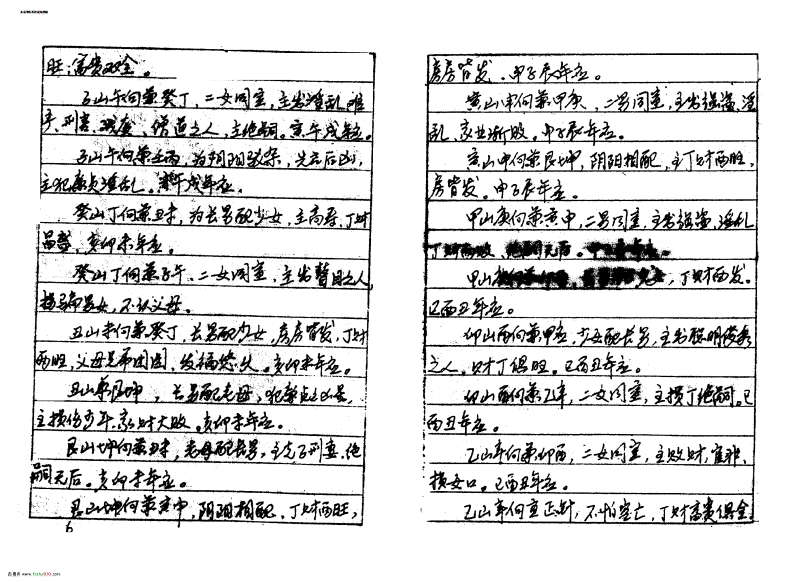 旺，富贵双全。
子山午向兼癸丁，二女同室，主出淫乱，难
产，刑害，残疾，僧道之人，主绝嗣。寅午戌年应。
子山午向兼壬丙，为阴阳驳杂，先吉后凶，
主犯廉贞淫乱。寅午戌年应。
癸山丁向兼丑未，为长男配少女，主高寿，丁财
昌盛，亥卯未年应。
癸山丁向兼子午，二女同室，主出瞽目之人，
男女，不认父母。
丑山未向兼癸丁，长男配少女，房房皆发，丁财
两旺，父母兄弟团圆，发福悠久。亥卯未年应。
丑山兼艮坤，长男配老母，犯廉贞之凶星，
主损伤少年，家财大败。亥卯未年应。
艮山坤向兼丑未，老母配长男，主克子刑妻，绝
嗣无后。亥卯未年应。
艮山坤向兼寅申，阴阳相配，丁财两旺，
6
房房皆发，申子辰年应。
寅山申向兼甲庚，二男同室，主出强盗，淫
乱，家业渐败，申子辰年应。
寅山申向兼艮坤，阴阳相配，主丁财两旺，
房皆发。申子辰年应。
甲山庚向兼寅申，二男同室，主出强盗，淫乱
丁财两败，绝嗣无后。
甲山，丁财两发。
巳酉丑年应。
卯山酉向兼甲庚，少女配长男，主出聪明俊秀
之人。财丁俱旺。巳酉丑年应。
卯山酉向兼乙辛，二女同室，主损丁绝嗣。巳
酉丑年应。
乙山辛向兼卯酉，二女同室，主败财，官非，
损女口。巳酉丑年应。
乙山辛向重正针，不怕空亡，丁财富贵俱全，